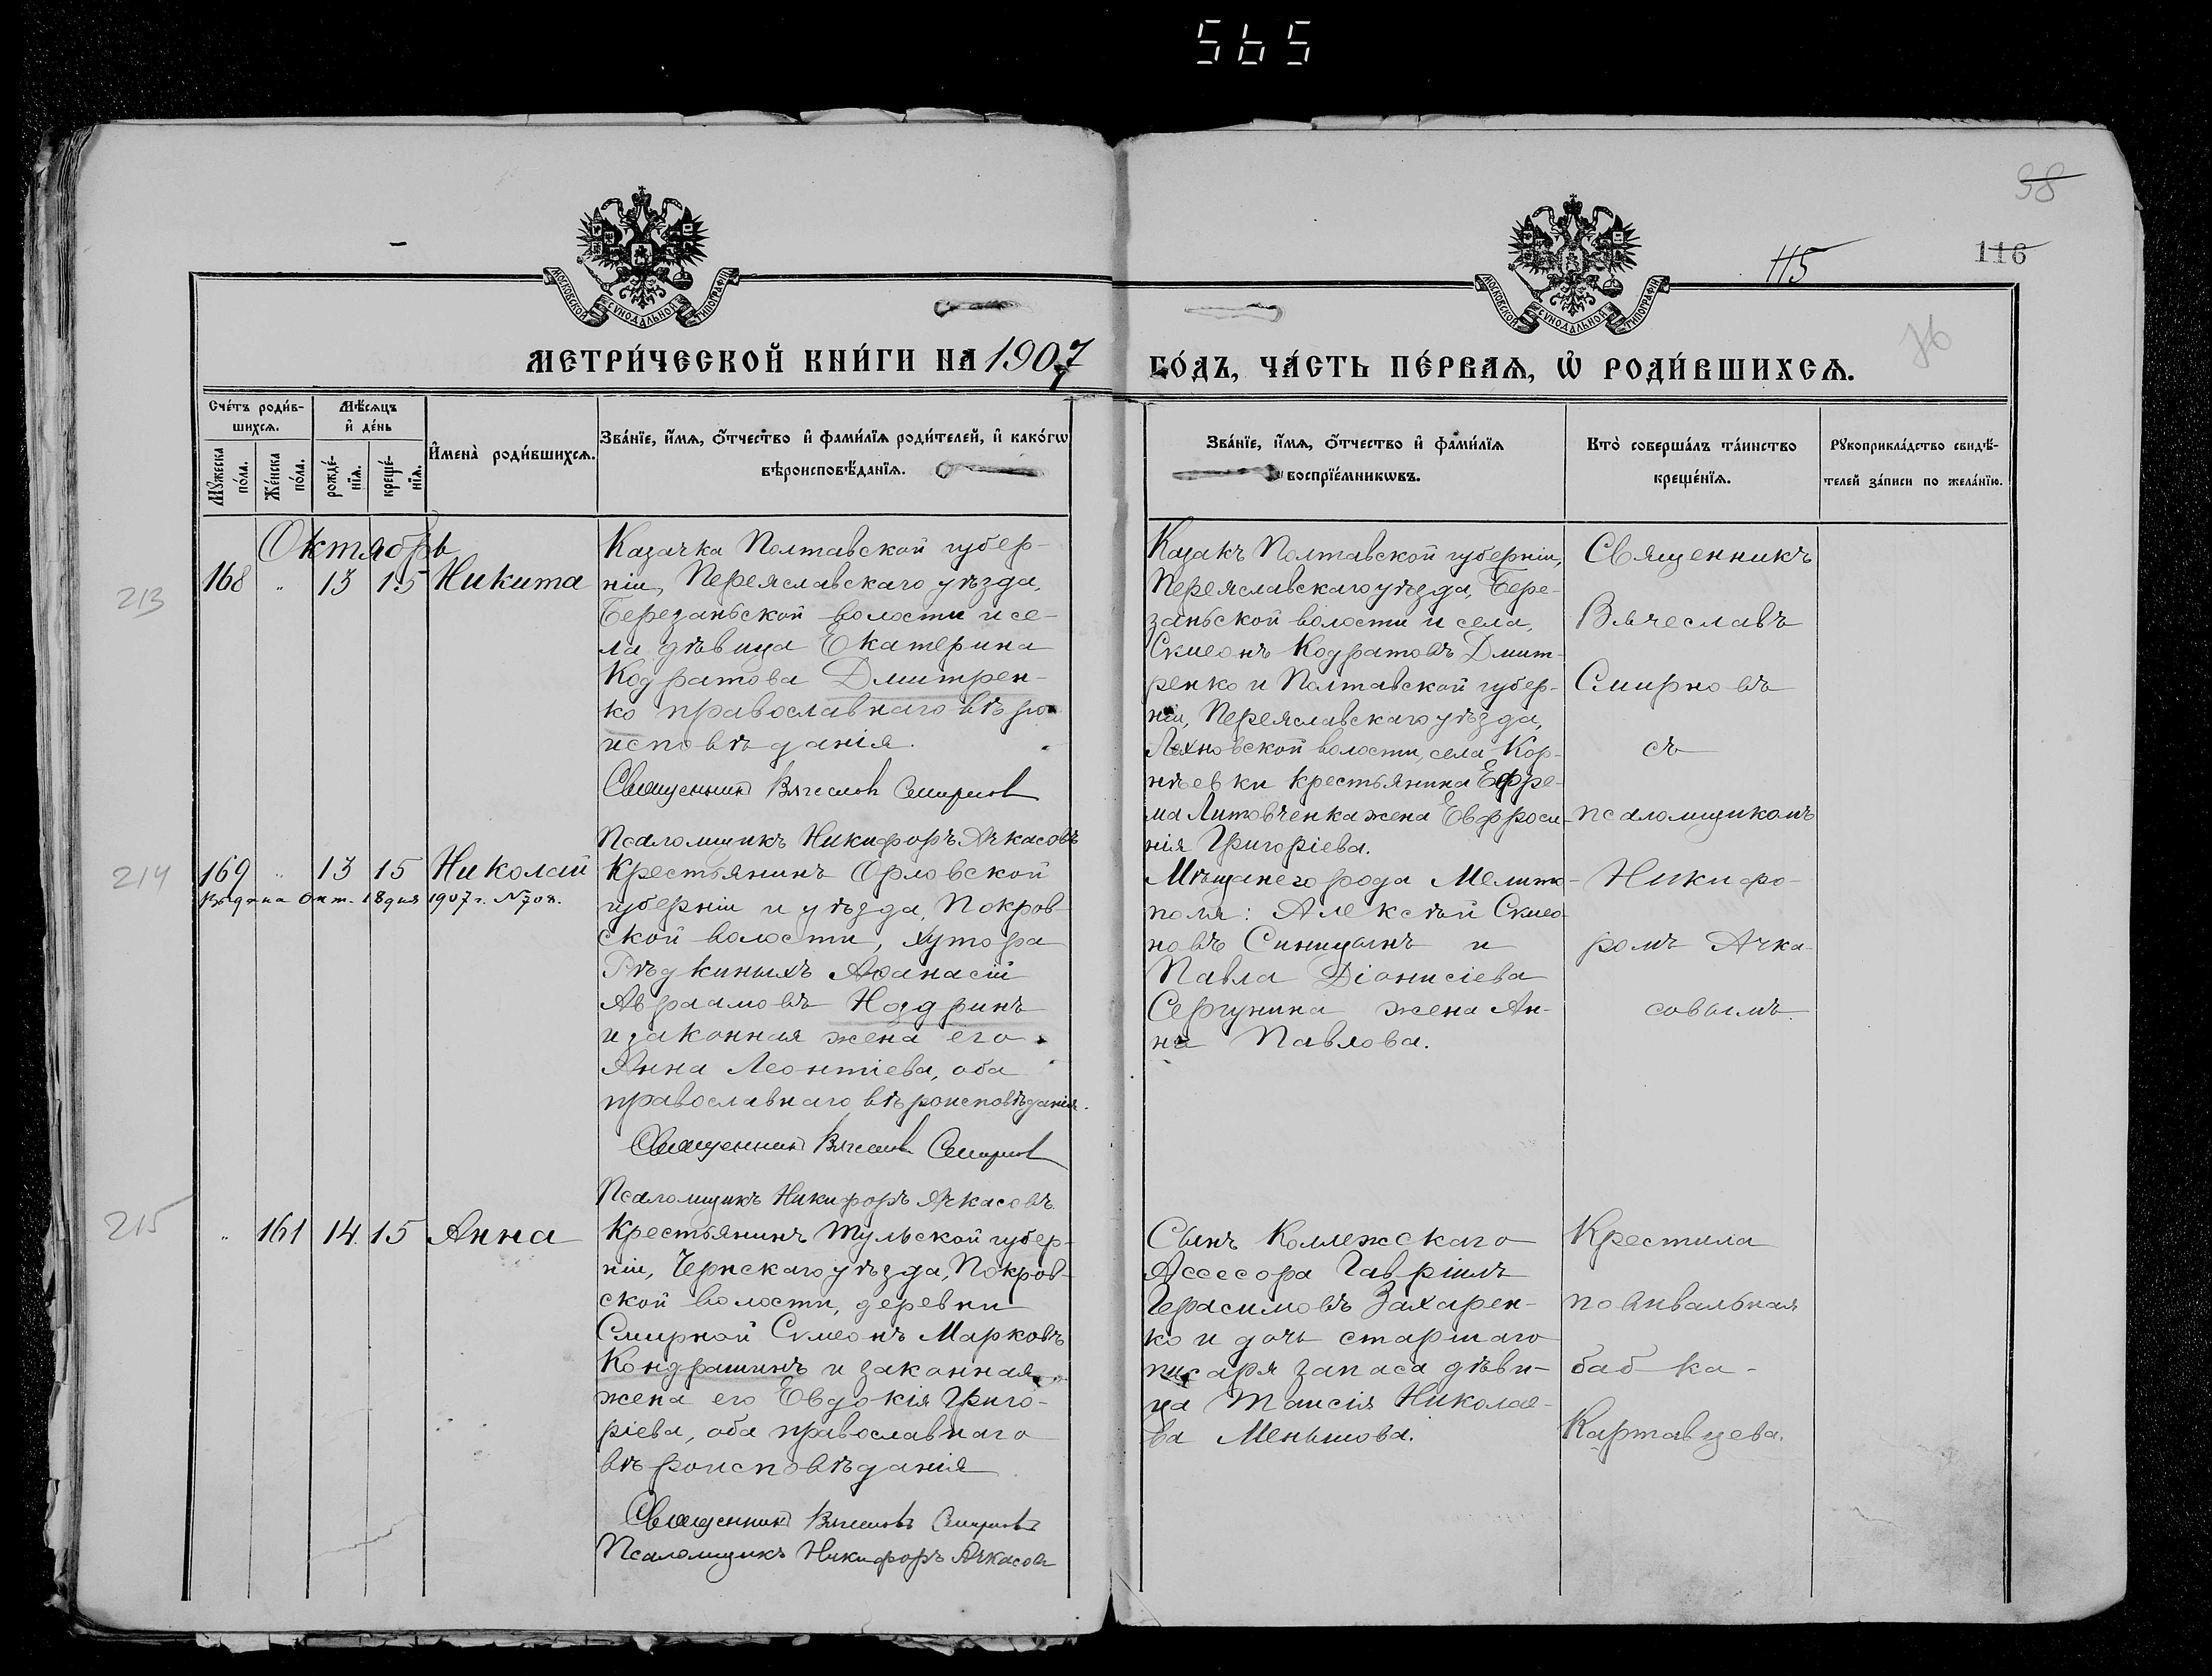 565
98
115
116
76
МОСКОВСКОЙ СѴНОДАЛЬНОЙ ТИПОГРАФІИ
МОСКОВСКОЙ СѴНОДАЛЬНОЙ ТИПОГРАФІИ
МЕТРИ́ЧЕСКОЙ КНИ́ГИ НА 1907
ГО́ДЪ, ЧА́СТЬ ПЕ́РВАѦ, Ѡ҆ РОДИ́ВШИХСѦ.
Сче́тъ роди́в-
шихсѧ.
Мꙋ́жеска по́ла.
Же́нска по́ла.
Мѣ́сѧцъ
и҆ де́нь
рожде́-
нїѧ.
креще́-
нїѧ.
И҆мена̀ роди́вшихсѧ.
Зва́нїе, и҆́мѧ, ѻ҆́тчество и҆ фами́лїѧ роди́телей, и҆ како́гѡ
вѣроисповѣ́данїѧ.
Зва́нїе, и҆́мѧ, ѻ҆́тчество и҆ фами́лїѧ
воспрїе́мникѡвъ.
Кто̀ соверша́лъ та́инство
креще́нїѧ.
Рꙋкоприкла́дство свидѣ́-
телей за́писи по жела́нїю.
Октябрь
213
168 " 13 15 Никита
Казачка Полтавской губер-
ніи, Переяславскаго уѣзда,
Березаньской волости и се-
ла дѣвица Екатерина
Кодратова Дмитрен-
ко православнаго вѣро
исповѣданія.
Священникъ Вячеславъ Смирновъ
Псаломщикъ Никифоръ Ачкасовъ
Казакъ Полтавской губерніи,
Переяславскаго уѣзда, Бере-
заньской волости и села,
Симеонъ Кодратовъ Дмит-
ренко и Полтавской губер-
ніи, Переяславскаго уѣзда,
Лехновской волости, села Кор-
нѣевки крестьянина Ефре-
ма Литовченка жена Евфроси-
нія Григоріева.
Священникъ
Вячеславъ
Смирновъ
съ
псаломщикомъ
Никифо-
ромъ Ачка-
совымъ
214
169 " 13 15 Николай
Выдана Окт. 18 дня 1907 г. №701.
Крестьянинъ Орловской
губерніи и уѣзда, Покров-
ской волости, хутора
Рѣдкиныхъ Аѳанасій
Авраамовъ Ноздринъ
и законная жена его
Анна Леонтіева, оба
православнаго вѣроисповѣданія.
Священникъ Вячеславъ Смирновъ
Псаломщикъ Никифоръ Ачкасовъ
Мѣщане города Мелито-
поля: Алексѣй Симео-
новъ Синицынъ и
Павла Діонисіева
Сергунина жена Ан-
на Павлова.
215
" 161 14 15 Анна
Крестьянинъ Тульской губер-
ніи, Чернскаго уѣзда, Покров-
ской волости, деревни
Смирной Симеонъ Марковъ
Кондрашинъ и законная
жена его Евдокія Григо-
ріева, оба православнаго
вѣроисповѣданія
Священникъ Вячеславъ Смирновъ
Псаломщикъ Никифоръ Ачкасовъ
Сынъ Коллежскаго
Ассесора Гавріилъ
Герасимовъ Захарен-
ко и дочь старшаго
писаря запаса дѣви-
ца Таисія Николае-
ва Меньшова.
Крестила
повивальная
бабка-
Картавцева.